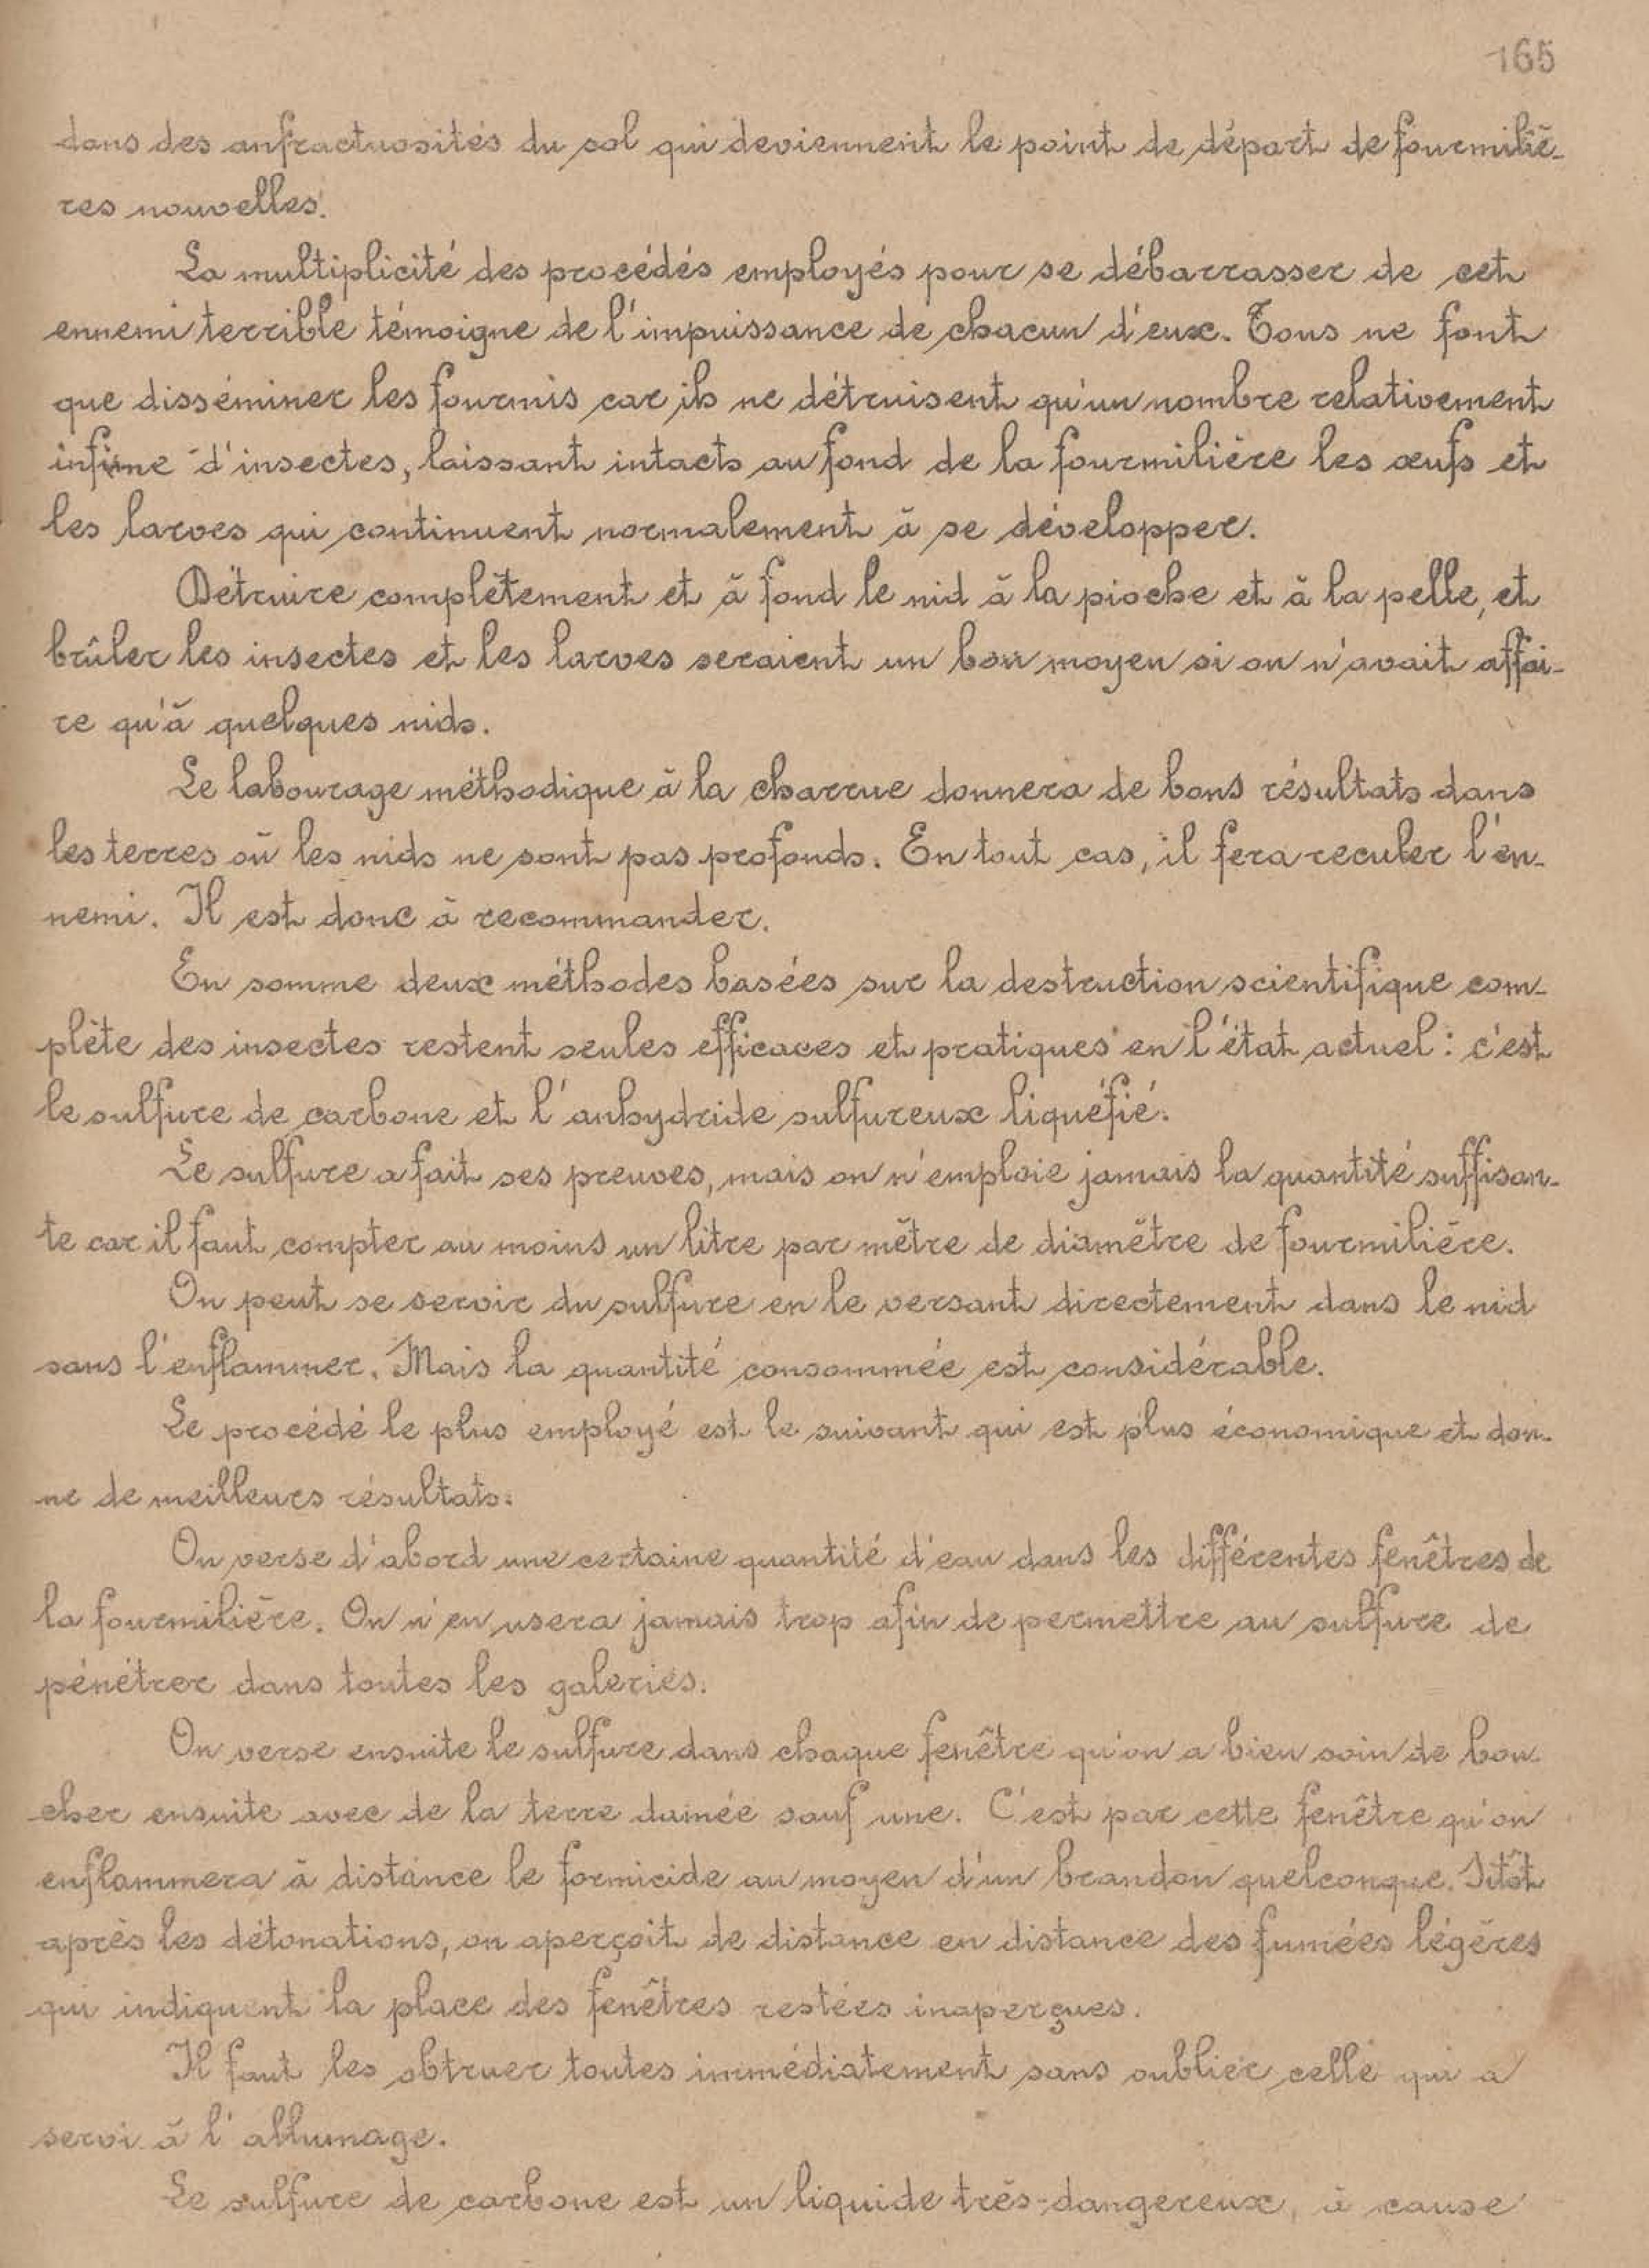 165
dans des anfractuosités du sol qui deviennent le point de départ de fourmiliè-
res nouvelles.
La multiplicité des procédés employés pour se débarrasser de cet
ennemi terrible témoigne de l'impuissance de chacun d'eux. Tous ne font
que disséminer les fourmis car ils ne détruisent qu'un nombre relativement
infime d'insectes, laissant intacts au fond de la fourmilière les œufs et
les larves qui continuent normalement à se développer.
Détruire complètement et à fond le nid à la pioche et à la pelle, et
brûler les insectes et les larves seraient un bon moyen si on n'avait affai-
re qu'à quelques nids.
Le labourage méthodique à la charrue donnera de bons résultats dans
les terres où les nids ne sont pas profonds. En tout cas, il fera reculer l'en-
nemi. Il est donc à recommander.
En somme deux méthodes basées sur la destruction scientifique com-
plète des insectes restent seules efficaces et pratiques en l'état actuel : c'est
le sulfure de carbone et l'anhydride sulfureux liquéfié.
Le sulfure a fait ses preuves, mais on n'emploie jamais la quantité suffisan-
te car il faut compter au moins un litre par mètre de diamètre de fourmilière.
On peut se servir du sulfure en le versant directement dans le nid
sans l'enflammer. Mais la quantité consommée est considérable.
Le procédé le plus employé est le suivant qui est plus économique et don-
ne de meilleurs résultats.
On verse d'abord une certaine quantité d'eau dans les différentes fenêtres de
la fourmilière. On n'en usera jamais trop afin de permettre au sulfure de
pénétrer dans toutes les galeries.
On verse ensuite le sulfure dans chaque fenêtre qu'on a bien soin de bou-
cher ensuite avec de la terre damée sauf une. C'est par cette fenêtre qu'on
enflammera à distance le formicide au moyen d'un brandon quelconque. Sitôt
après les détonations, on aperçoit de distance en distance des fumées légères
qui indiquent la place des fenêtres restées inaperçues.
Il faut les obtruer toutes immédiatement sans oublier celle qui a
servi à l'allumage.
Le sulfure de carbone est un liquide très-dangereux, à cause